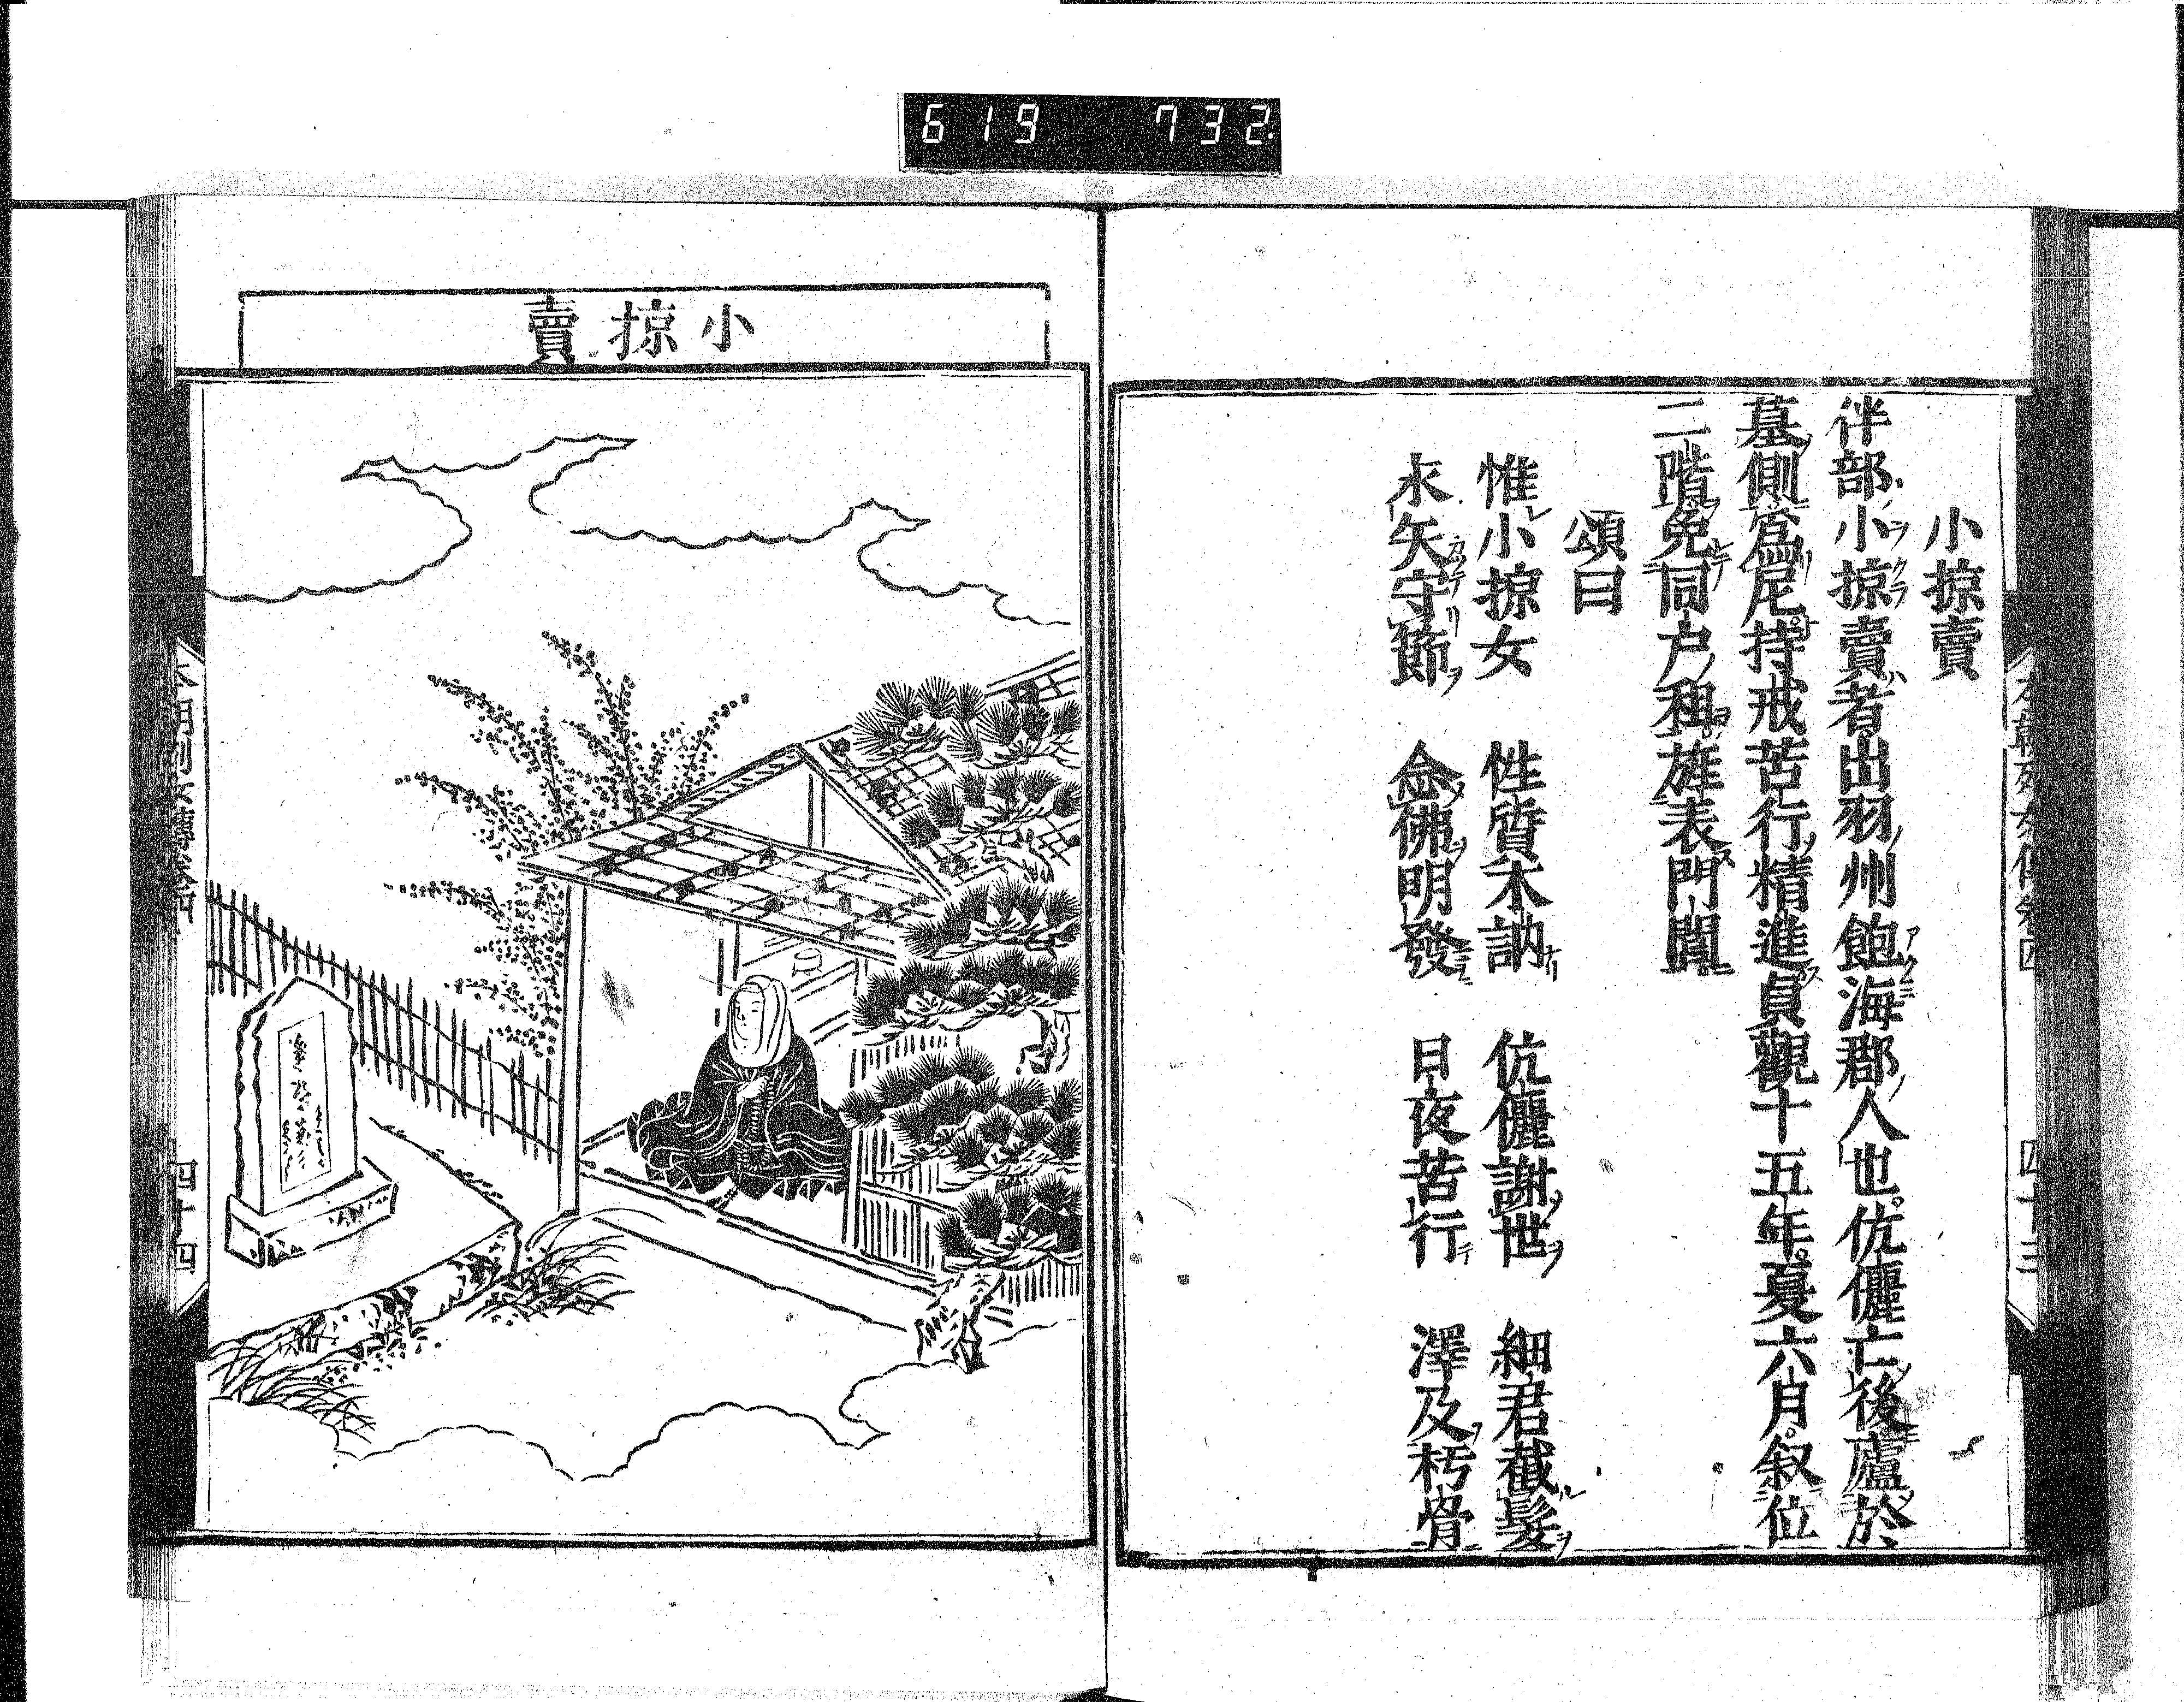 619 732
小掠賣
伴部小掠賣者出羽州飽海郡人也。伉儷亡後廬於
墓側爲尼。持戒苦行精進貞觀十五年。夏六月。叙位
二階免同户租。旌表門閭。
頌曰
惟小掠女 性質木訥 伉儷謝世 細君截髮
永矢守節 念佛明發 日夜苦行 澤及朽骨
四十三
小掠賣
四十四